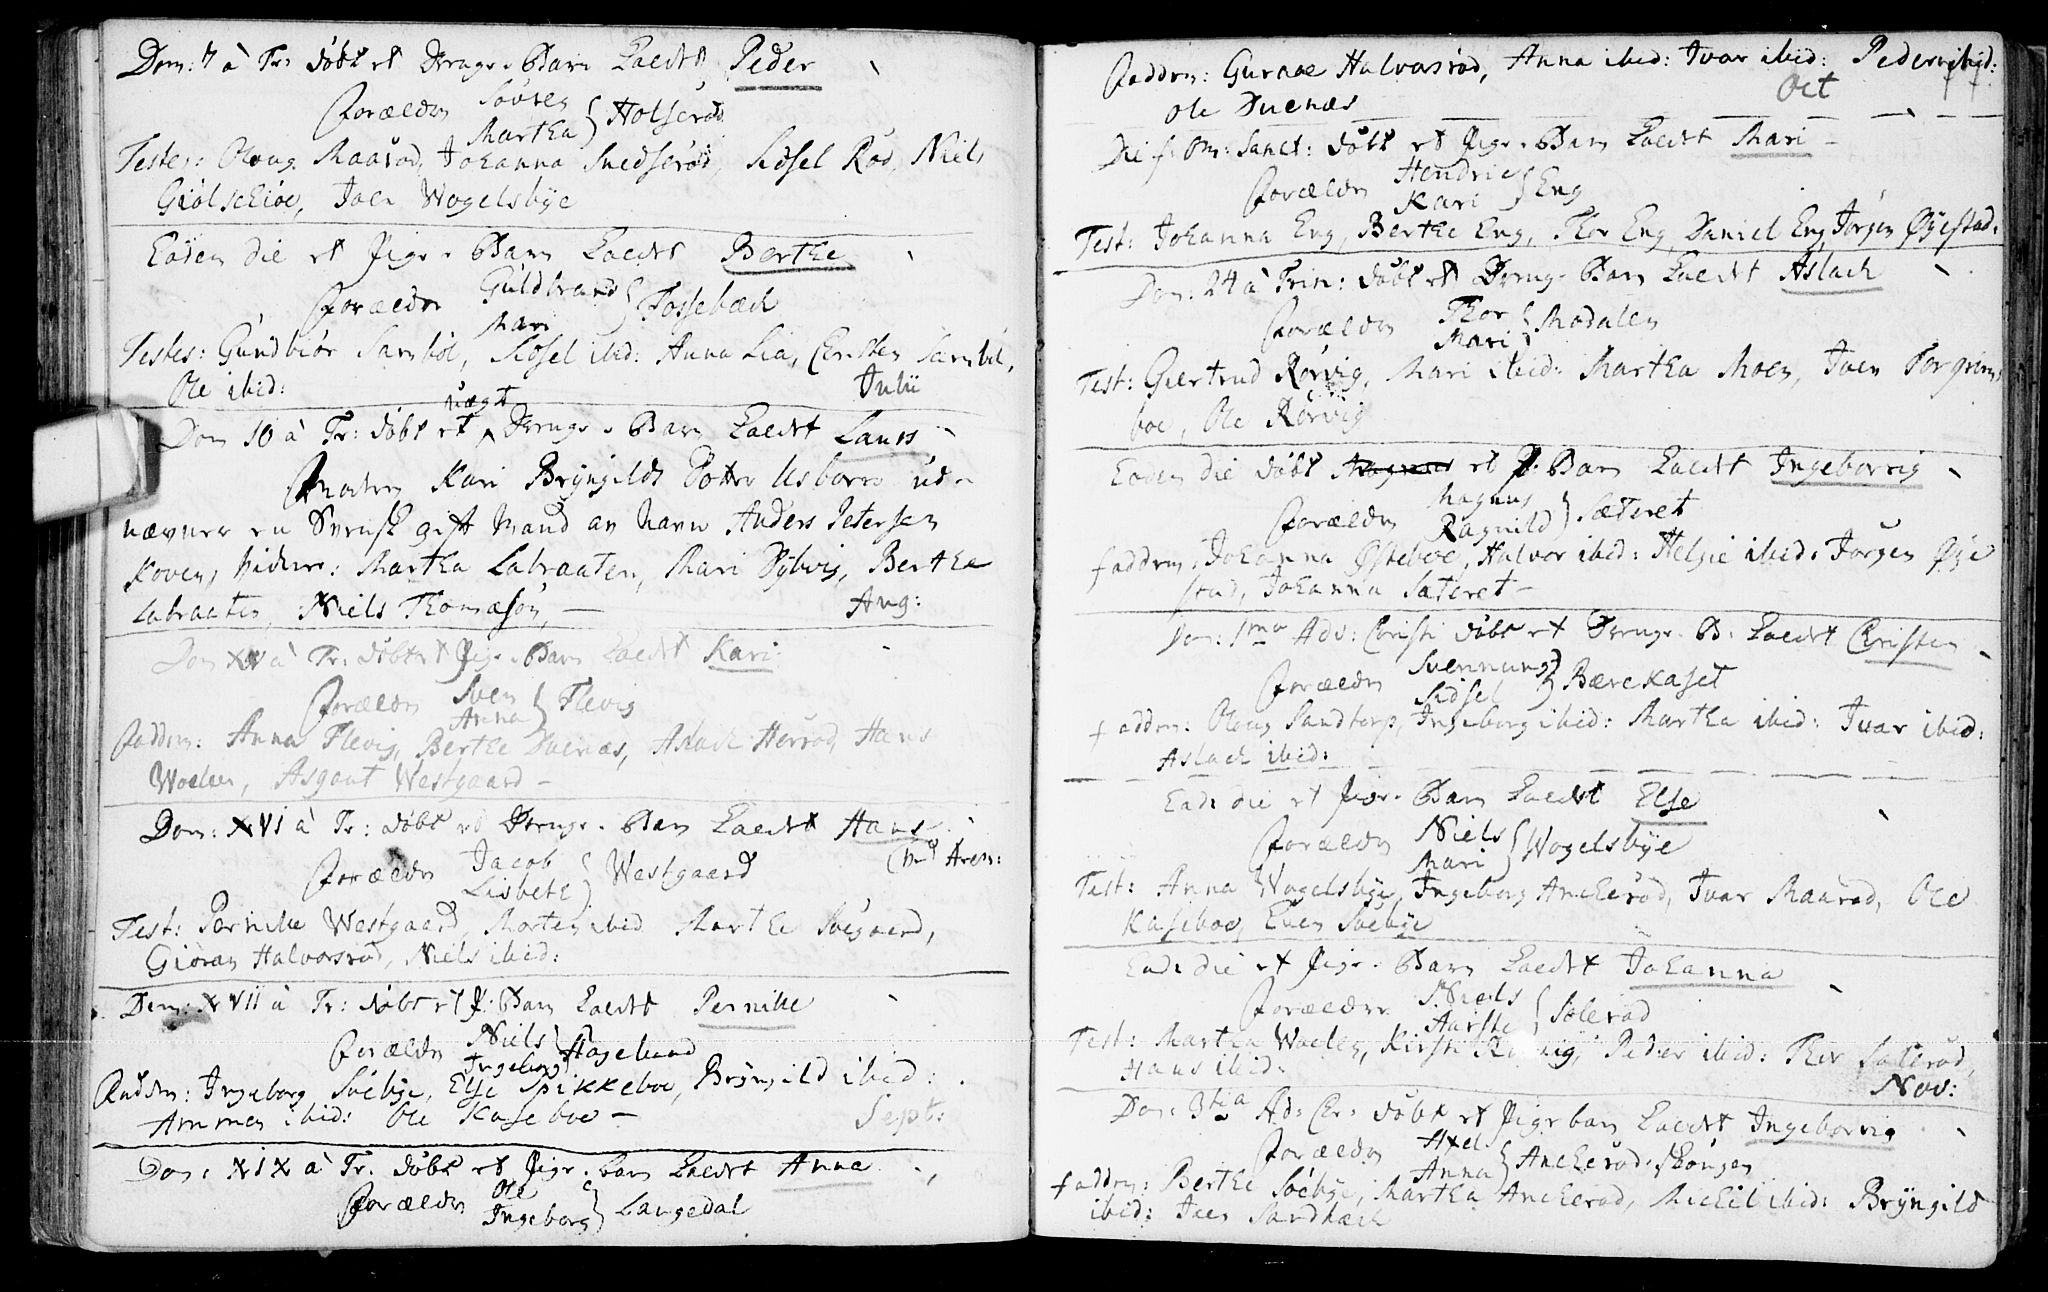 Dom: 7 à Tr: døbt et Drenge-Barn kaldet Peder
Forældre Søvren
Martha } Holserød
Testes: Oloug Maarød, Johanna Snedserød, Sidsel Rød, Niels
Giølschiøe, Joen Wogelsbye
Eaden die et Pige-Barn kaldet Berthe
Forældre Guldbrand
Mari } Fossebæch
Testes: Gundbiør Sarnböl, Sidsel ibid: Anna Lia, Christen Sarnböl,
Ole ibid: Julii
Dom 10 à Tr: døbt et uægt Drenge-Barn kaldet Laurs
Moderen Kari Bryngilds Dotter Usborre ud-
nævner en Svensk gift Mand av Navn Anders Petersen
Koven, Fadere: Martha Labraaten, Mari Dybvig, Berthe
Labraaten, Niels Thomasøn, — Aug:
Dom XV à Tr: døbt et Pige-Barn kaldet Kari
Forældre Sven
Anna } Flevig
Faddere: Anna Flevig, Berthe Duenæs, Aslach Herrød, Hans
Woelen, Asgout Westgaard —
Dom: XVI à Tr: døbt et Drenge-Barn kaldet Hans
Forældre Jacob
Lisbeth } Westgaard
Test: Pernille Westgaard, Morten ibid Marthe Svegaard,
Giøran Halvorsrød, Niels ibid:
Dom: XVII à Tr: døbt et P: Barn kaldet Pernille
Forældre Niels
Ingeborg } Hagelund
Faddere: Ingeborg Søebye, Else Spikkeboe, Bryngild ibid:
Ammon ibid: Ole Kaseboe — Sept:
Dom: XIX à Tr. døbt et Pige-barn kaldet Anne
Forældre Ole
Ingeborg } Langedal
Faddere: Guroe Halvorsrød, Anna ibid: Ivar ibid: Peder ibid:
Ole Duenæs Oct
Die f: Om: Sanct: døbt et Pige-Barn kaldet Mari —
Forældre Hendric
Kari } Eng
Test: Johanna Eng, Berthe Eng, Thor Eng, Daniel Eng, Jørgen Øyestad:
Dom: 24 à Trin: døbt et Drenge-Barn kaldet Aslach
Forældre Thor
Mari } Modalen
Test: Giertrud Rørvig, Mari ibid: Martha Moen, Joen Torgrims
boe, Ole Rørvig
Eaden die døbt et P: Barn kaldet Ingeborrig
Forældre Magnus
Ragnild } Sæteret
faddere: Johanna Østeboe, Halvor ibid: Helgie ibid: Jørgen Øye
stad, Johanna Sæteret —
Dom: 1ma Adv: Christi døbt et Drenge-B: kaldet Christen
Forældre Svennung
Sidsel } Bærekaset
faddere: Oloug Sandtorp, Ingeborg ibid: Martha ibid: Ivar ibid:
Aslach ibid:
Ead: die et Pige-Barn kaldet Else
Forældre Niels
Mari } Wogelsbye
Test: Anna Wogelsbye, Ingeborg Ancherød, Ivar Maarød, Ole
Kaseboe, Even Søebye
Ead: die et Pige-Barn kaldet Johanna
Forældre Niels
Aarste } Solerød
Test: Martha Woelen, Kirsti Peder ibid: Thor Solerød,
Hans ibid: Nov:
Dom: 3tia Ad: Chr: døbt et Pigebarn kaldet Ingeborrig
Forældre Axel
Anna } Ancherød-skougen
faddere: Berthe Søebye, Martha Ancherød, Michil ibid: Bryngild
ibid: Joen Sandbæch